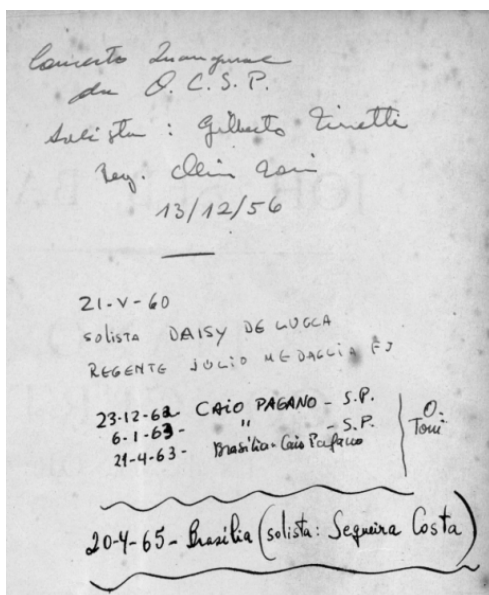 Concerto Inaugural
da O. C. S. P.
Solista : Gilberto Tinetti
Reg. Olivier Toni
13/12/56
21-V-60
solista DAISY DE LUCCA
REGENTE JULIO MEDAGLIA
23-12-62 CAIO PAGANO - S.P.
6-1-63- " - S.P.
21-4-63- Brasília - Caio Pagano
O. Toni
20-4-65- Brasília (solista: Sequeira Costa)